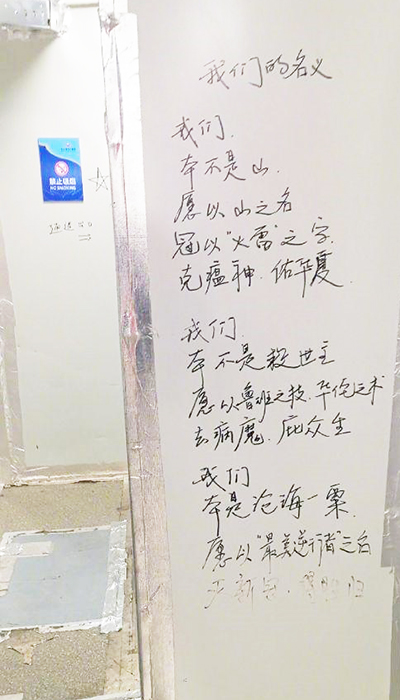 我们的名义
我们.
本不是山.
愿以山之名
冠以“火雷”之字.
克瘟神.佑华夏.
我们.
本不是救世主
愿以鲁班之技.华佗之术
去病魔.庇众生
我们
本是沧海一粟.
愿以“最美逆行者”之名
新冠
禁止吸烟
NO SMOKING